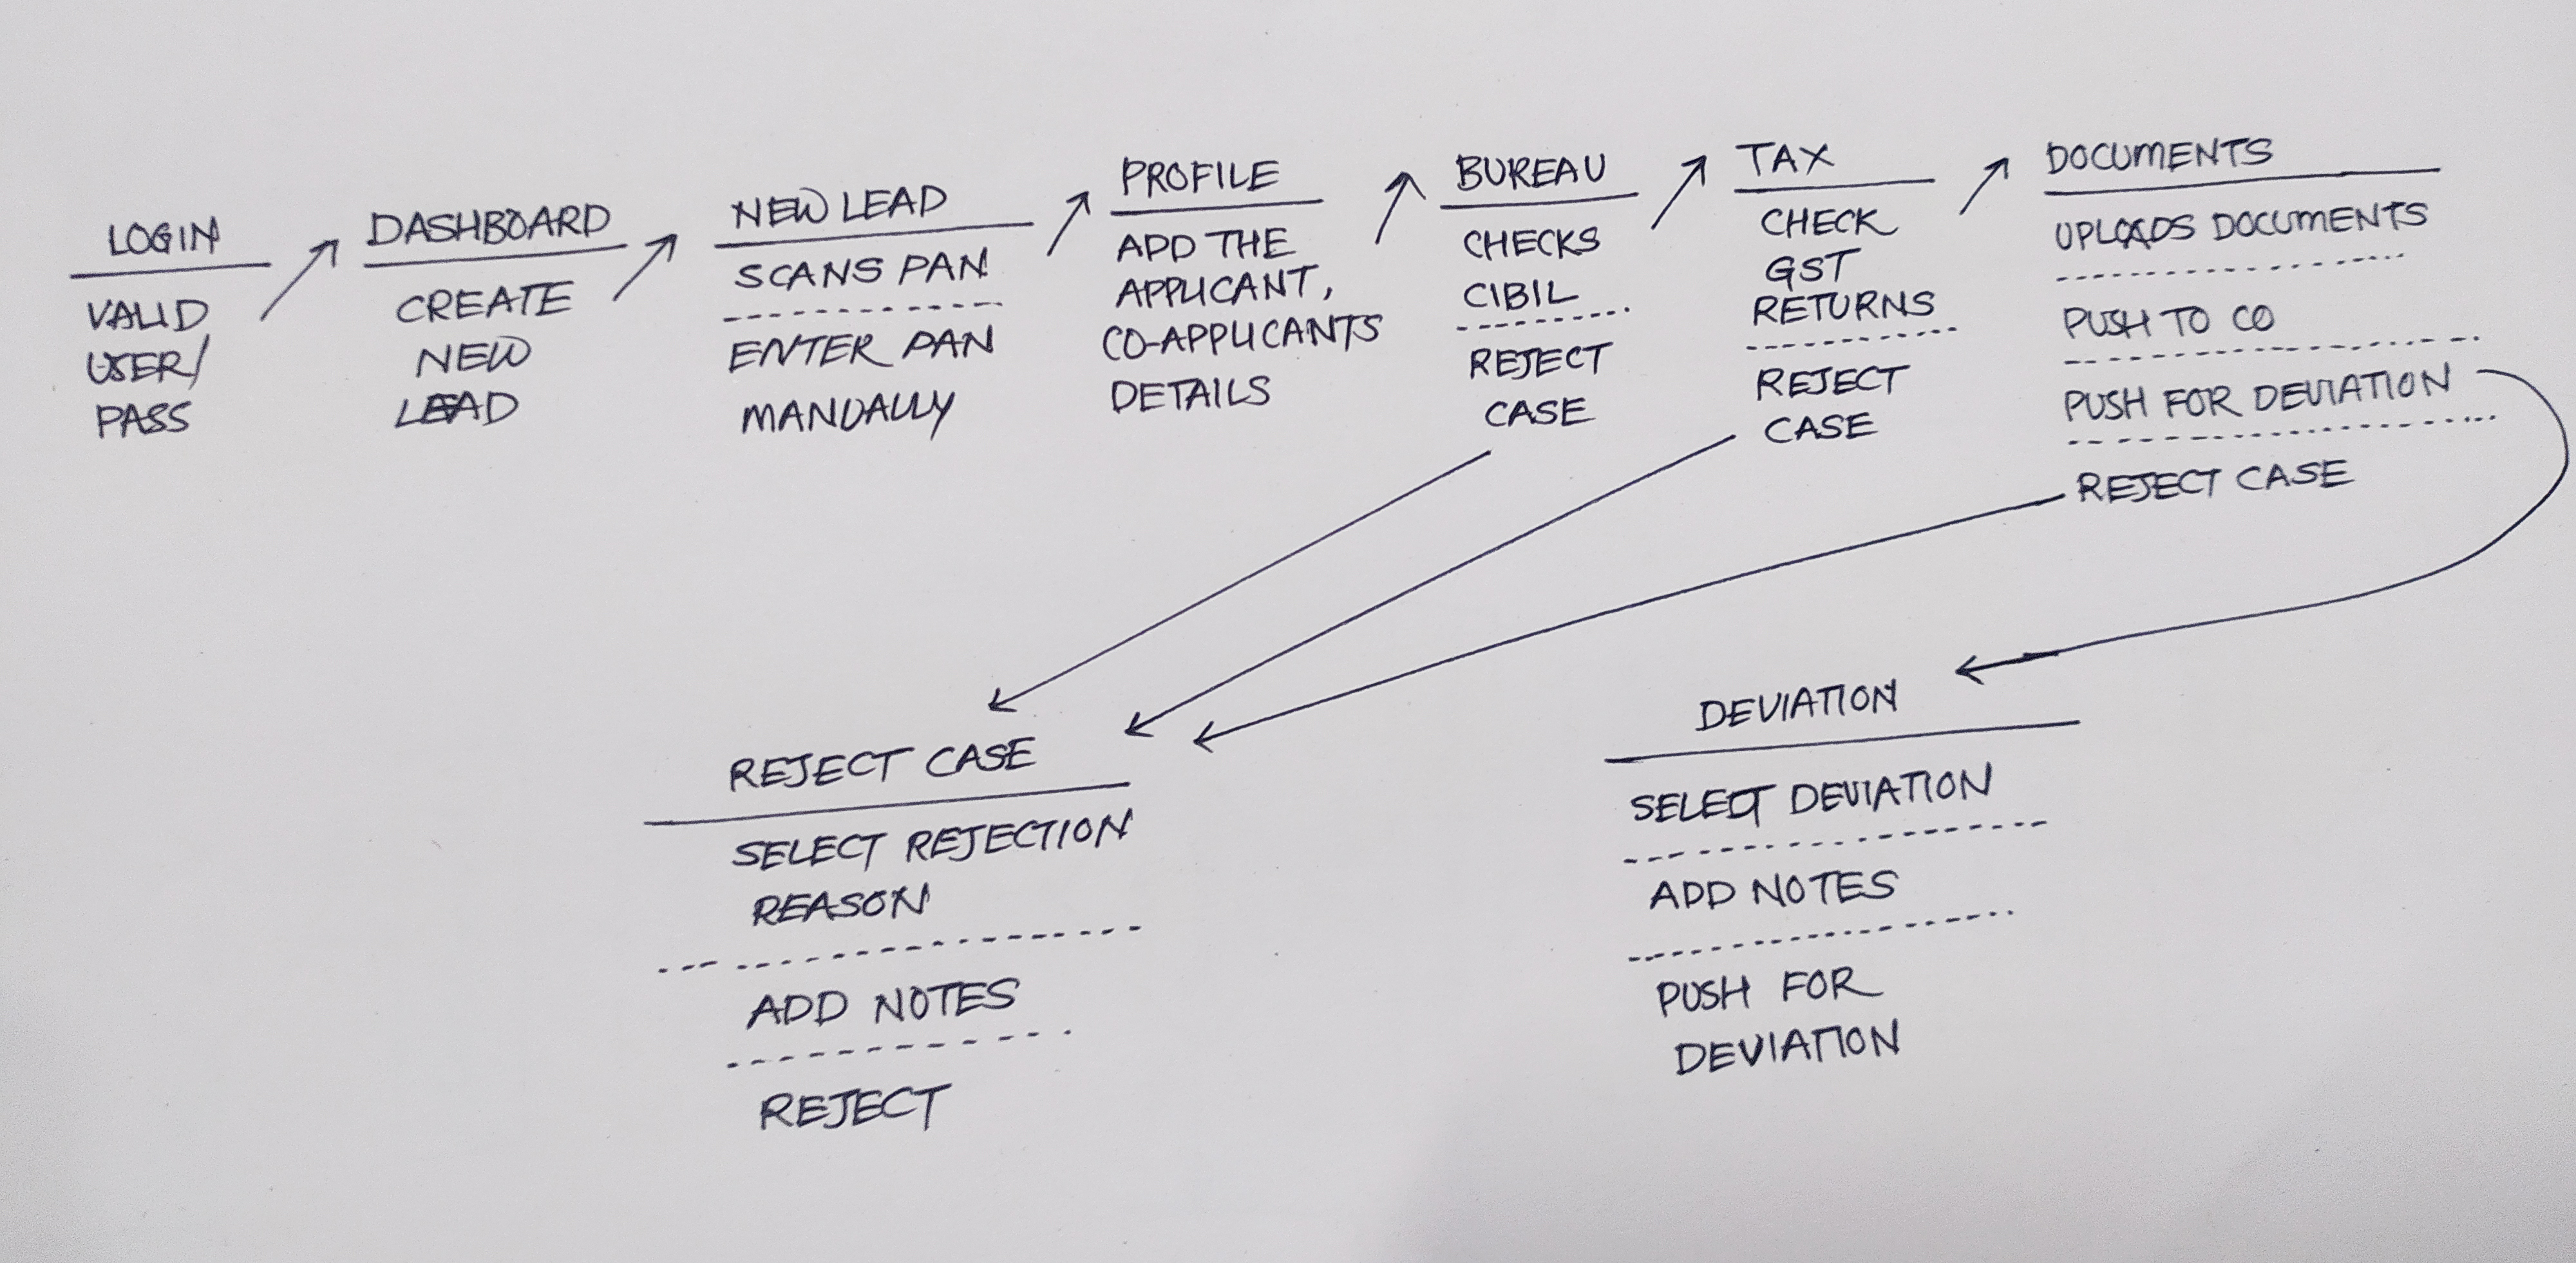 LOGIN
VALID
USER/
PASS
DASHBOARD
CREATE
NEW
LEAD
NEW LEAD
SCANS PAN
ENTER PAN
MANUALLY
PROFILE
ADD THE
APPLICANT,
CO-APPLICANTS
DETAILS
BUREAU
CHECKS
CIBIL
REJECT
CASE
TAX
CHECK
GST
RETURNS
REJECT
CASE
DOCUMENTS
UPLOADS DOCUMENTS
PUSH TO CO
PUSH FOR DEVIATION
REJECT CASE
REJECT CASE
SELECT REJECTION
REASON
ADD NOTES
REJECT
DEVIATION
SELECT DEVIATION
ADD NOTES
PUSH FOR
DEVIATION